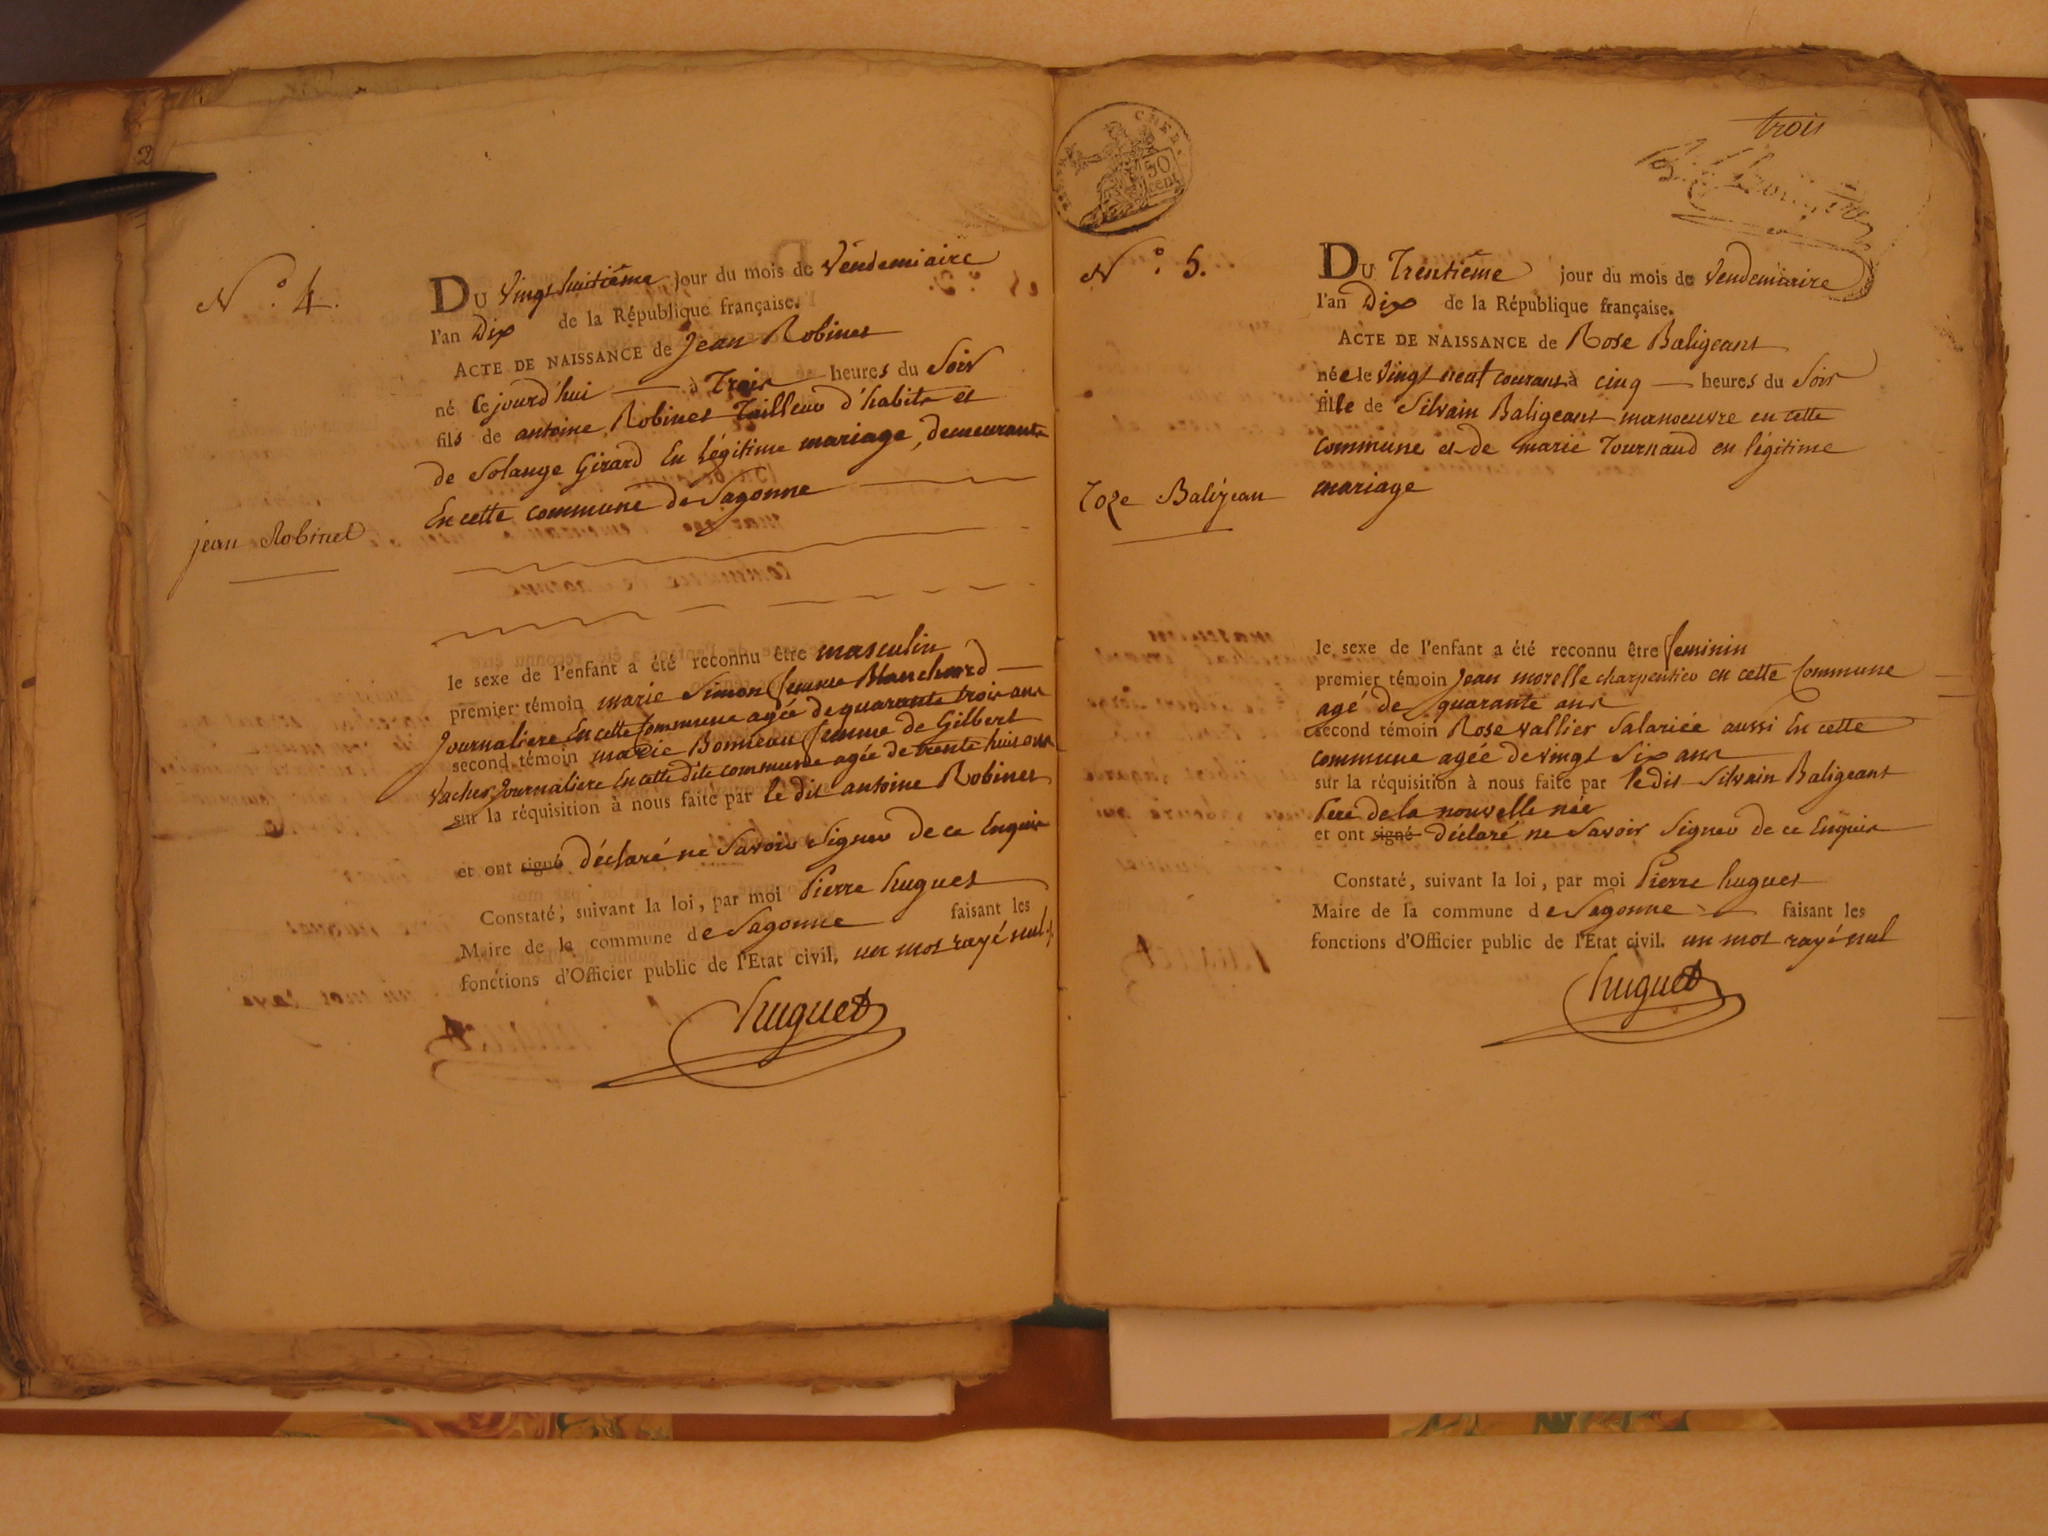 2
N.° 4.
DU Vingt huitième jour du mois de Vendemiaire
l'an Dix de la République française.
ACTE DE NAISSANCE de Jean Robinet
né Cejourd'hui à Trois heures du Soir
fils de antoine Robinet Tailleur d'habits et
de Solange Girard En légitime mariage, demeurants
En cette commune de Sagonne
jean Robinet
le sexe de l'enfant a été reconnu être masculin
premier témoin marie Simon femme Blanchard
Journaliere En cette Commune agée de quarante trois ans
second témoin marie Bonneau femme de Gilbert
Vacher Journaliere En cette dite commune agée de trente huit ans
sur la réquisition à nous faite par le dit antoine Robinet
et ont signé déclaré ne Savoir Signer de ce Enquis
Constaté, suivant la loi, par moi Pierre huguet
Maire de la commune de Sagonne faisant les
fonctions d'Officier public de l'Etat civil. un mot rayé nul
huguet
CHER.
50
cent
trois
N.° 5.
DU Trentième jour du mois de Vendemiaire
l'an Dix de la République française.
ACTE DE NAISSANCE de Rose Baligeant
née le Vingt neuf courant à cinq heures du Soir
fille de Silvain Baligeant manoeuvre en cette
commune et de marie Tournaud en légitime
mariage
roze Balijean
le sexe de l'enfant a été reconnu être feminin
premier témoin Jean morelle charpentier en cette Commune
agé de quarante ans
second témoin Rose vallier Salariée aussi En cette
commune agée de vingt Six ans
sur la réquisition à nous faite par le dit Silvain Baligeant
Pere de la nouvelle née
et ont signé déclaré ne Savoir Signer de ce Enquis
Constaté, suivant la loi, par moi Pierre huguet
Maire de la commune de Sagonne faisant les
fonctions d'Officier public de l'Etat civil. un mot rayé nul
huguet